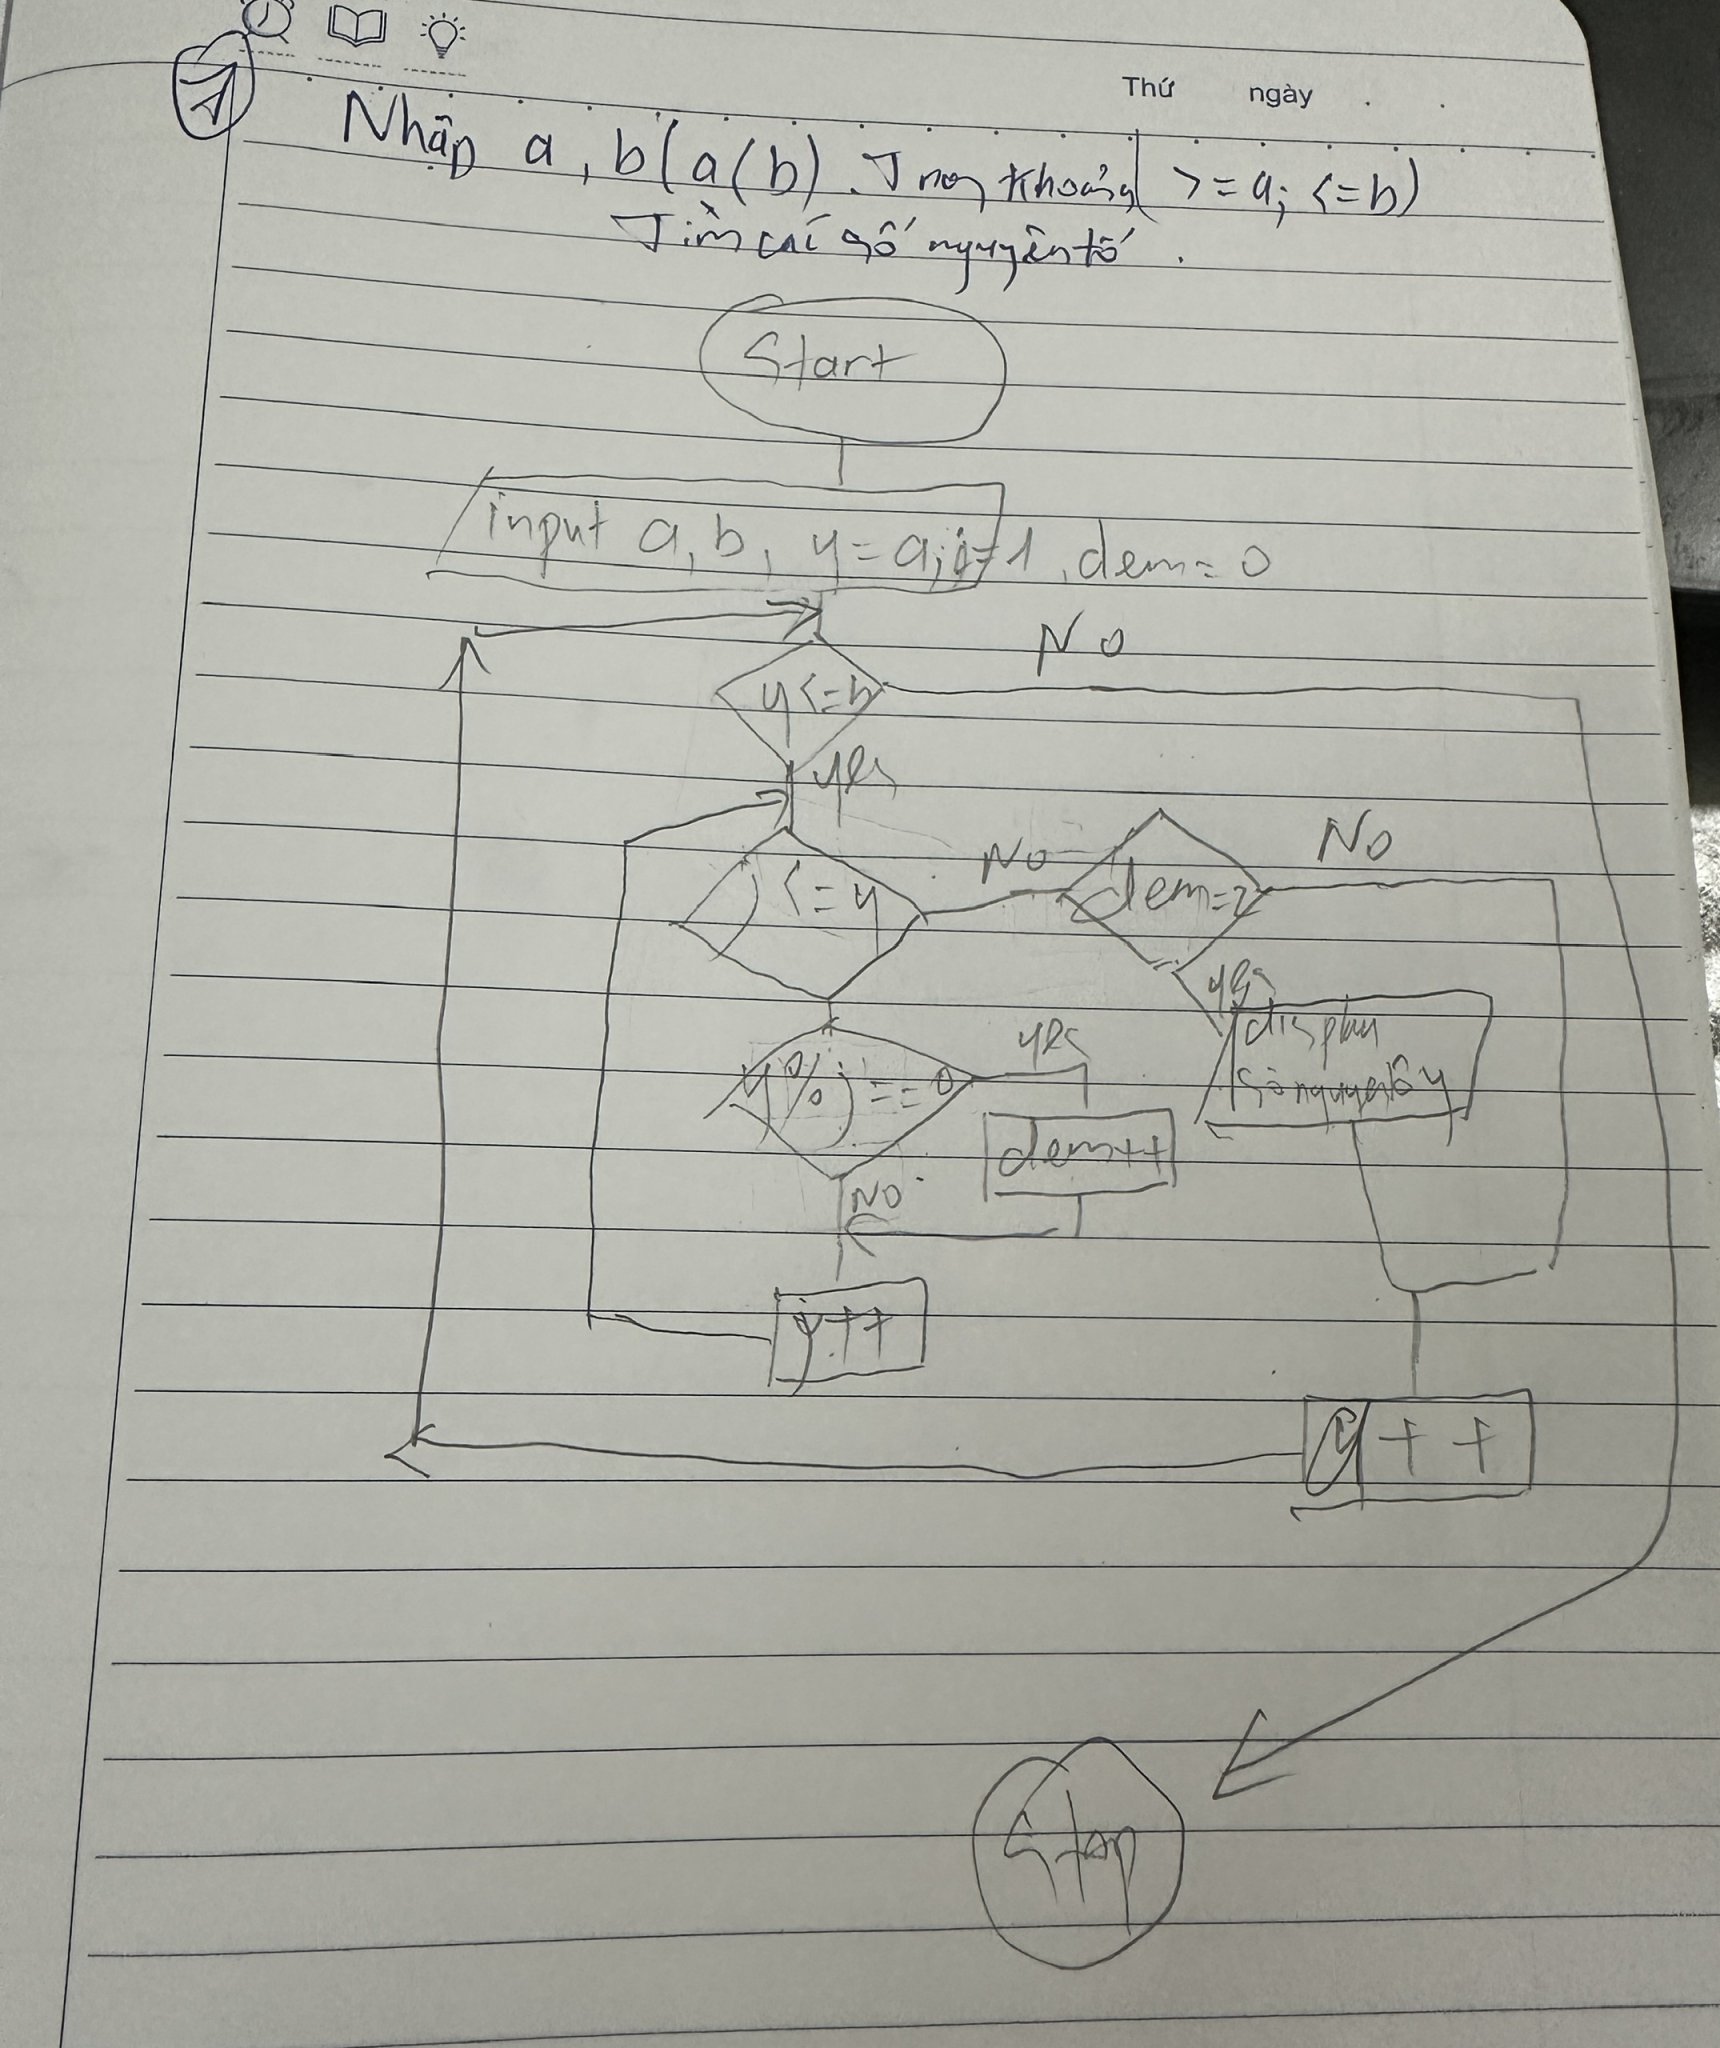 Thứ ngày
1 Nhập a, b (a(b). Trong khoảng( >= a; <= b)
Tìm các số nguyên tố.
Start
input a, b, y = a; j = 1, dem = 0
No
y <= b
yes
j <= y
No
dem = 2
No
yes
display
số nguyên tố y
y % j == 0
yes
dem++
No
j++
y++
Stop